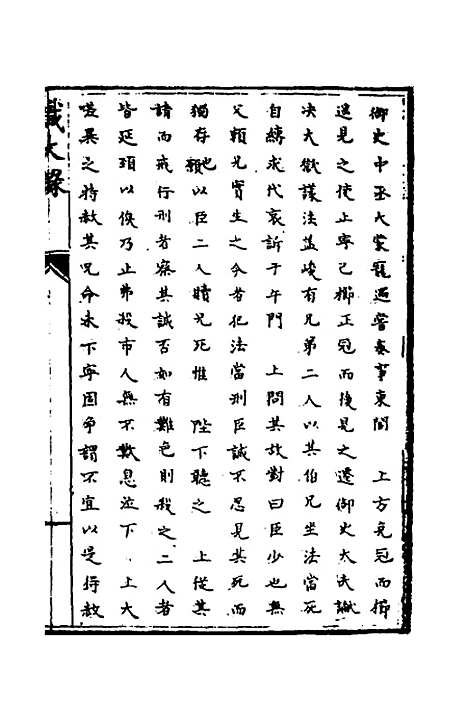 御史中丞大蒙寵遇嘗奏事東閣　上方免冠而櫛
遥見之使止寧已櫛正冠而後見之遷御史大夫讞
決大獄議法益峻有兄弟二人以其伯兄坐法當死
自縛求代哀訴于午門　上問其故對曰臣少也無
父頼兄實生之今者犯法當刑臣誠不忍見其死而
獨存也願以臣二人贖兄死惟　陛下聽之　上從其
請而戒行刑者察其誠否如有難色則殺之二人者
皆延頸以俟乃止弗殺市人無不歎息泣下　上大
嗟異之特赦其兄命未下寧固争謂不宜以是得赦
識大錄